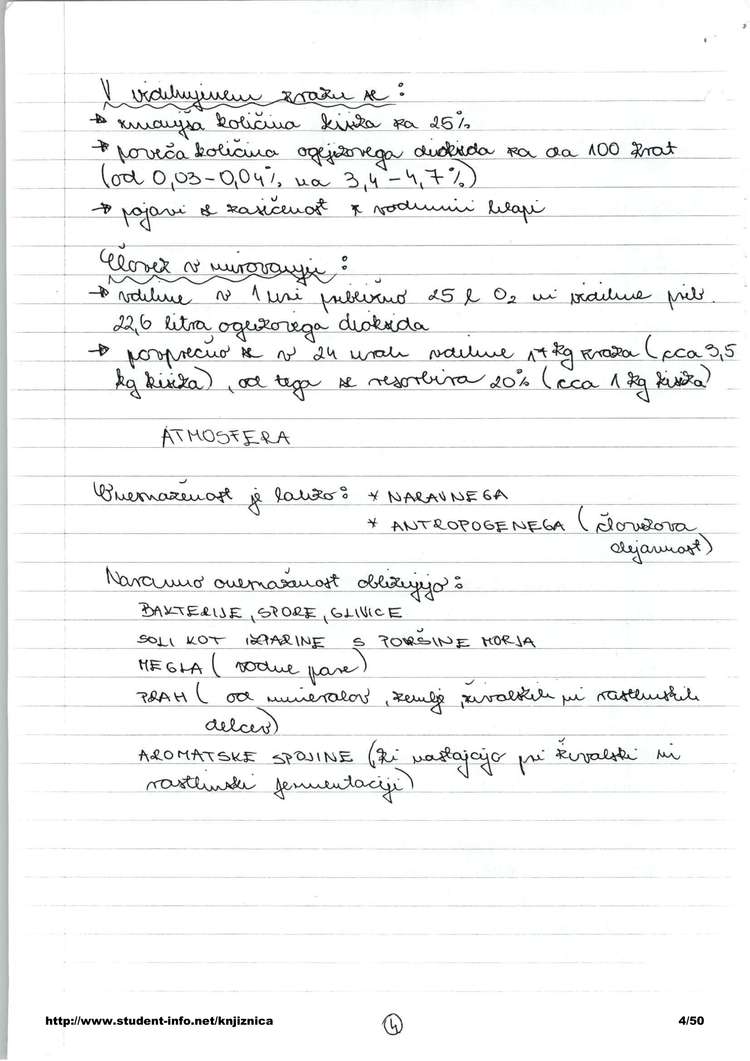 V izdihanem zraku se :
→ zmanjša količina kisika za 25%
→ poveča količina ogljikovega dioksida za ca 100 krat
(od 0,03-0,04%, na 3,4-4,7%)
→ pojavi se zasičenost z vodnimi hlapi
Človek v mirovanju :
→ vdihne v 1 uri približno 25 l O2 in izdihne prib.
22,6 litra ogljikovega dioksida
→ povprečno se v 24 urah vdihne 17 kg zraka (cca 3,5
kg kisika), od tega se resorbira 20% (cca 1 kg kisika)
ATMOSFERA
Onesnaženost je lahko : * NARAVNEGA
* ANTROPOGENEGA (človekova
dejavnost)
Naravno onesnaženost oblikujejo :
BAKTERIJE, SPORE, GLIVICE
SOLI KOT IZPARINE S POVRŠINE MORJA
MEGLA (vodne pare)
PRAH (od mineralov, zemlje, živalskih in rastlinskih
delcev)
AROMATSKE SPOJINE (ki nastajajo pri živalski in
rastlinski fermentaciji)
http://www.student-info.net/knjiznica
4
4/50